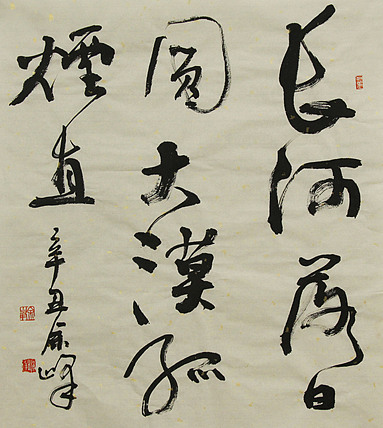 長河落日
圓大漠孤
煙直
辛丑